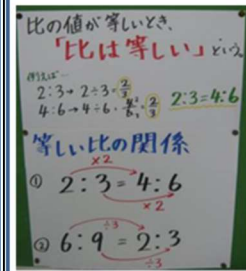 比の値が等しいとき、
「比は等しい」という。
例えば…
2:3→2÷3=2/3
4:6→4÷6=4/6=2/3
2:3=4:6
等しい比の関係
×2
① 2:3=4:6
×2
÷3
② 6:9=2:3
÷3